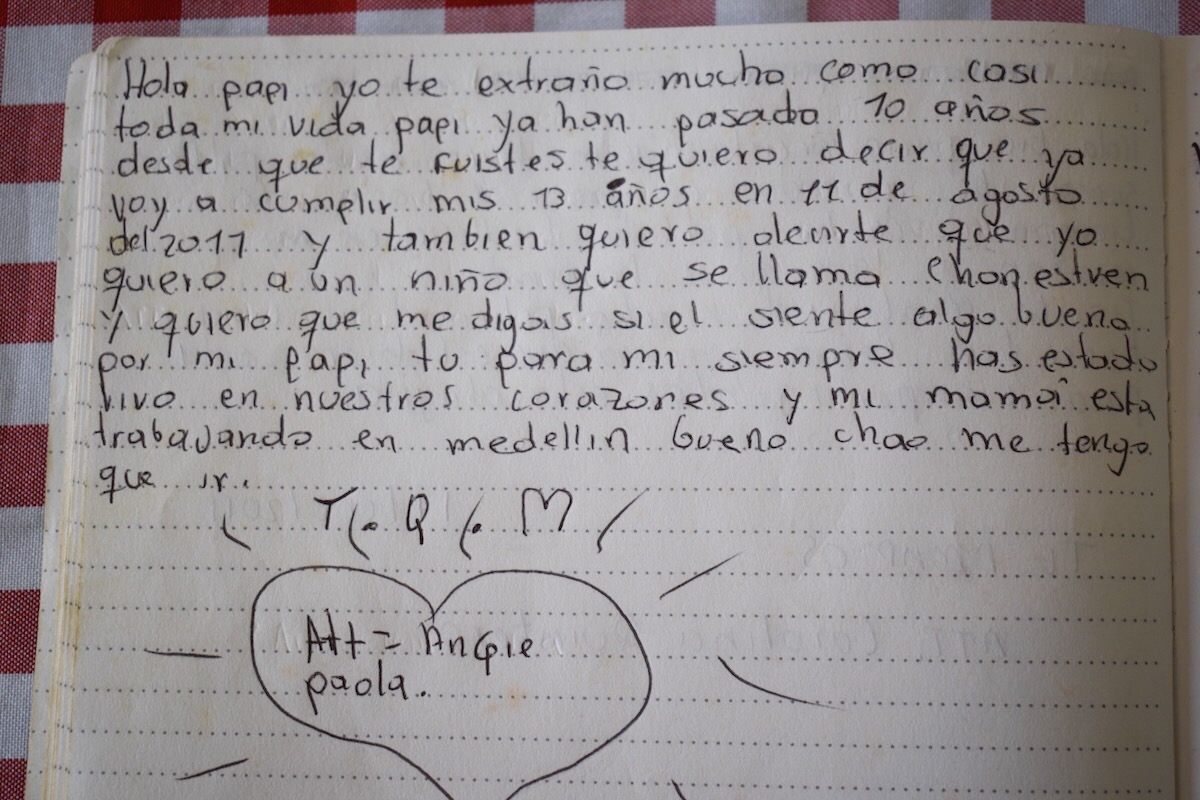 Hola papi yo te extraño mucho como casi
toda mi vida papi ya han pasado 10 años
desde que te fuistes te quiero decir que ya
voy a cumplir mis 13 años en 11 de agosto
del 2017 y tambien quiero decirte que yo
quiero a un niño que se llama Chonestven
y quiero que me digas si el siente algo bueno
por mi papi tu para mi siempre has estado
vivo en nuestros corazones y mi mamá esta
trabajando en medellin bueno chao me tengo
que ir.
T. Q. M
Att = Angie
paola.